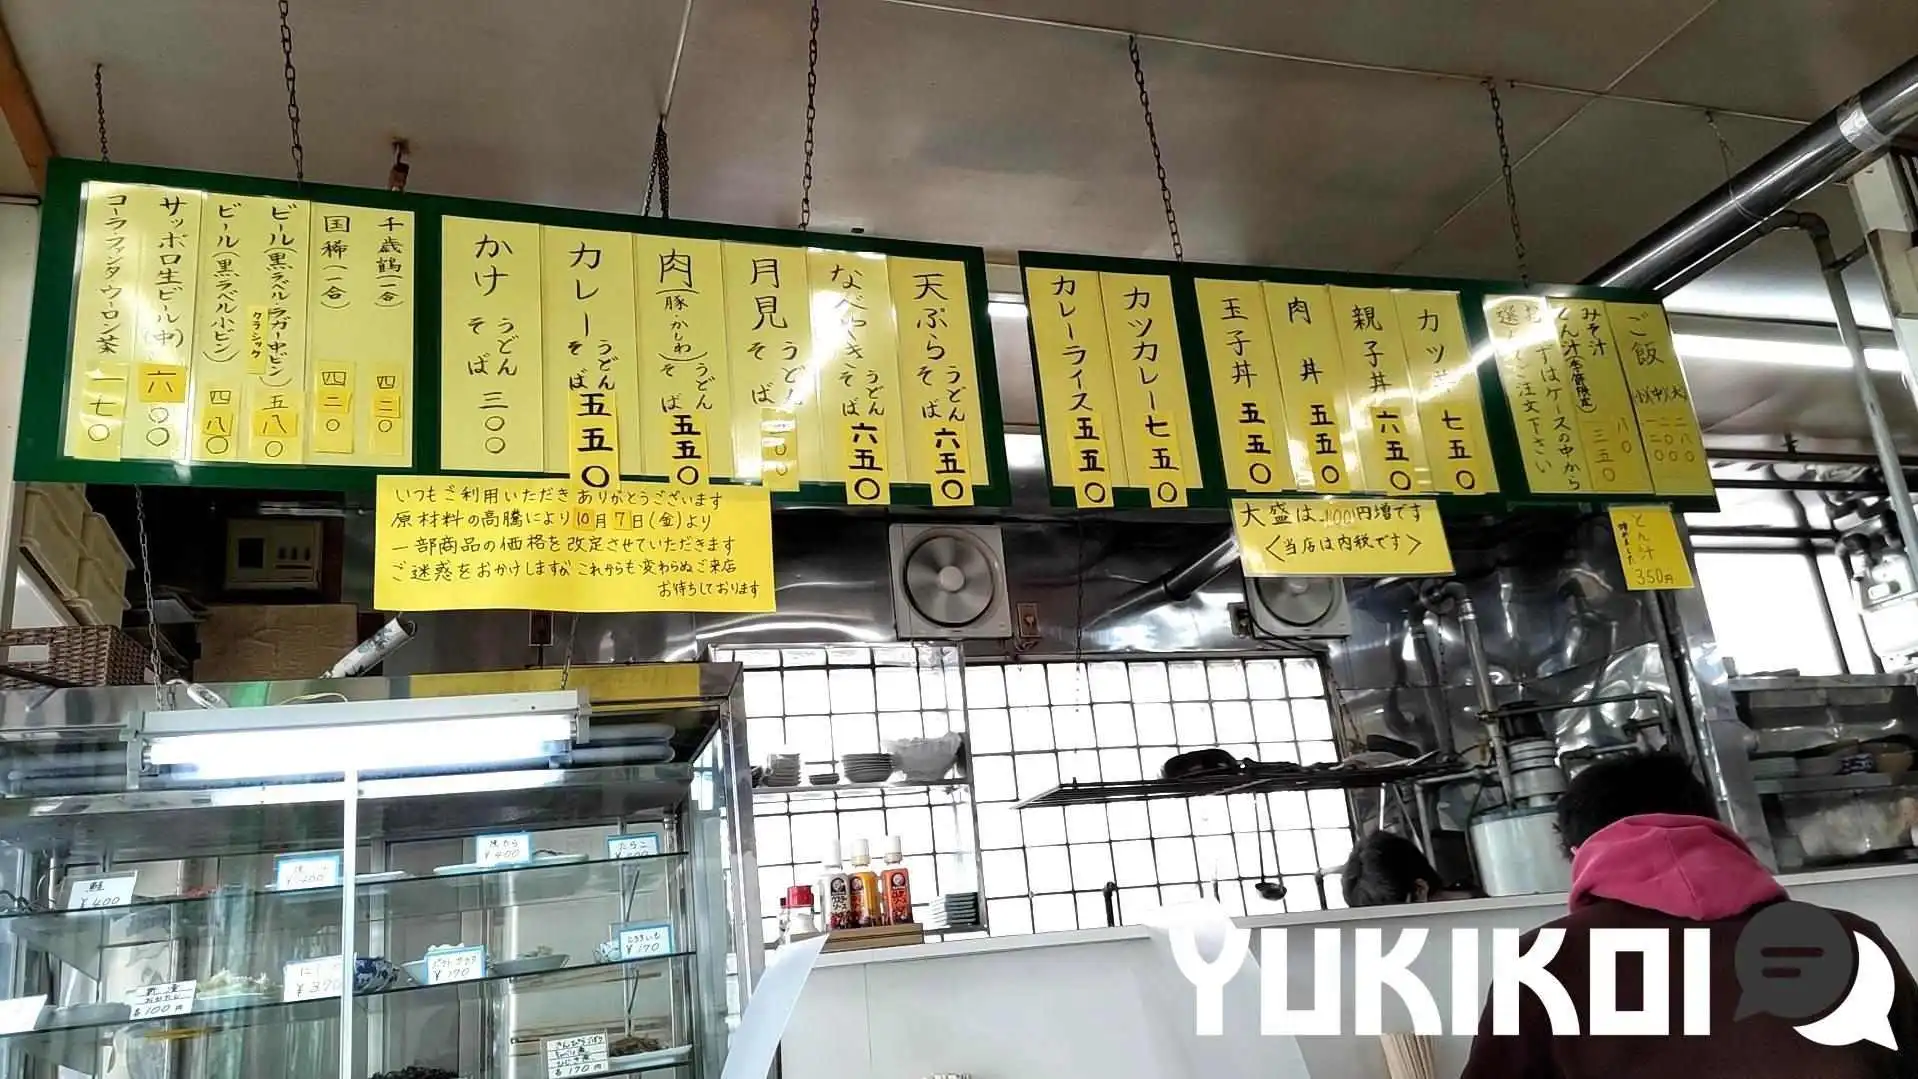 千歳鶴(一合) 四二〇
国稀(一合) 四二〇
ビール(黒ラベル・ラガー中ビン) 五八〇
クラシック
ビール(黒ラベル小ビン) 四八〇
サッポロ生ビール(中) 六〇〇
コーラ・ファンタ・ウーロン茶 一七〇
天ぷら うどん そば 六五〇
なべやき うどん そば 六五〇
月見 うどん そば
肉(豚・かしわ) うどん そば 五五〇
カレー うどん そば 五五〇
かけ うどん そば 三〇〇
カツカレー 七五〇
カレーライス 五五〇
カツ丼 七五〇
親子丼 六五〇
肉丼 五五〇
玉子丼 五五〇
ご飯
大 二八〇
中 二〇〇
小 一二〇
みそ汁 八〇
とん汁(季節限定) 三五〇
はケースの中から
ご注文下さい
いつもご利用いただきありがとうございます
原材料の高騰により10月7日(金)より
一部商品の価格を改定させていただきます
ご迷惑をおかけしますが これからも変わらぬご来店
お待ちしております
大盛は100円増です
<当店は内税です>
とん汁
始めました
350円
鮭
¥400
¥400
¥400
たらこ
ポテトサラダ
¥170
¥170
¥370
100円
170円
YUKIKOI